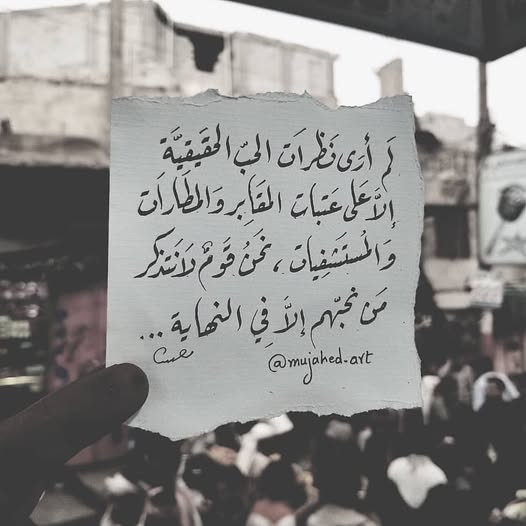 لَم أرَى نَظرَات الحبّ الحَقيقيَّة
إلاَّ عَلى عَتبات المقَابِر وَالمطَارَات
وَالمُستَشفيَات ، نَحنُ قَومٌ لاَنَتذكر
مَن نحبّهم إلاَّ فِي النهاية ...
@mujahed.art